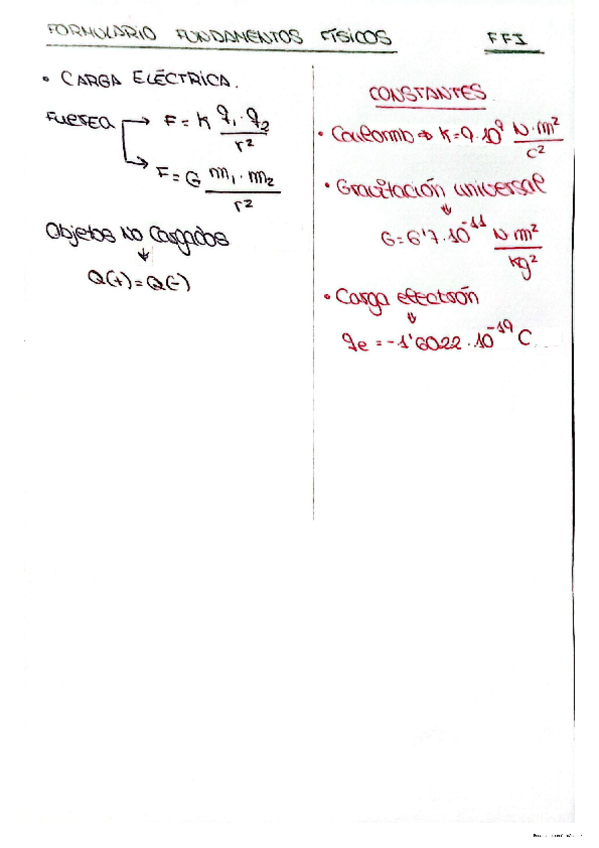 FORMULARIO FUNDAMENTOS FÍSICOS FFI
• CARGA ELÉCTRICA.
FUERZA → F = K q₁ · q₂ / r²
→ F = G m₁ · m₂ / r²
Objetos NO Cargados
↓
Q(+) = Q(-)
CONSTANTES
• Coulomb ⇒ K = 9 · 10⁹ N · m² / C²
• Gravitación universal
⇓
G = 6'7 · 10⁻¹¹ N · m² / kg²
• Carga electrón
⇓
qe = -1'6022 · 10⁻¹⁹ C